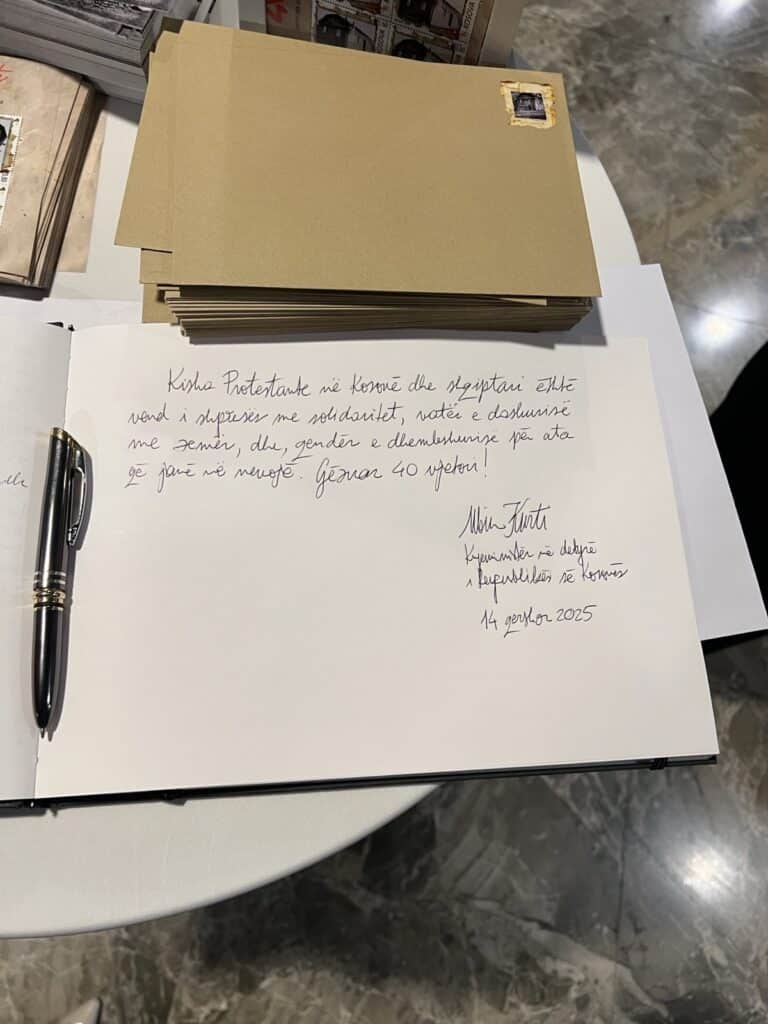 KOSOVA
Kisha Protestante në Kosovë dhe shqiptari është
vend i shpresës me solidaritet, vatër e dashurisë
me zemër, dhe, qendër e dhembshurisë për ata
që janë në nevojë. Gëzuar 40 vjetori!
Albin Kurti
Kryeministër në detyrë
i Republikës së Kosovës
14 qershor 2025